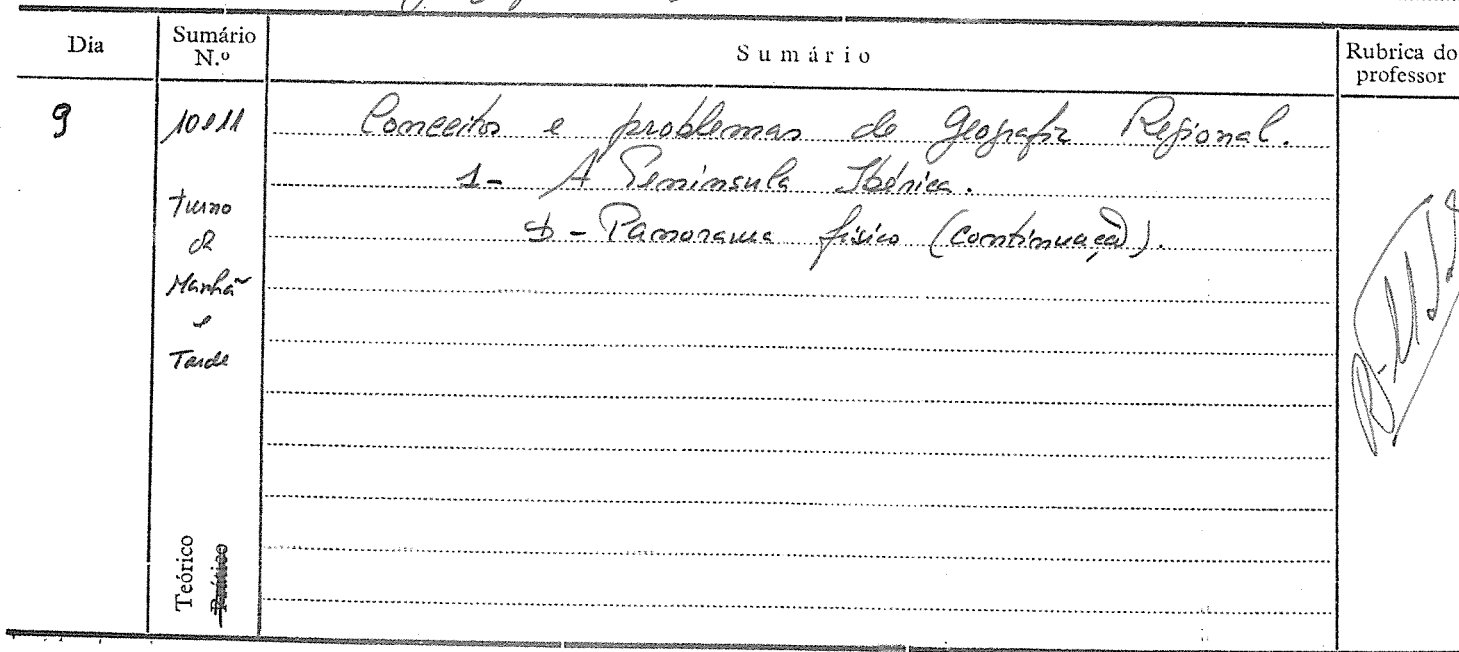 Dia
Sumário N.º
Sumário
Rubrica do professor
9
10 e 11
turno
da
Manhã
e
Tarde
Teórico
Prático
Conceitos e problemas de Geografia Regional.
1 - A Península Ibérica.
- Panorama físico (continuação).